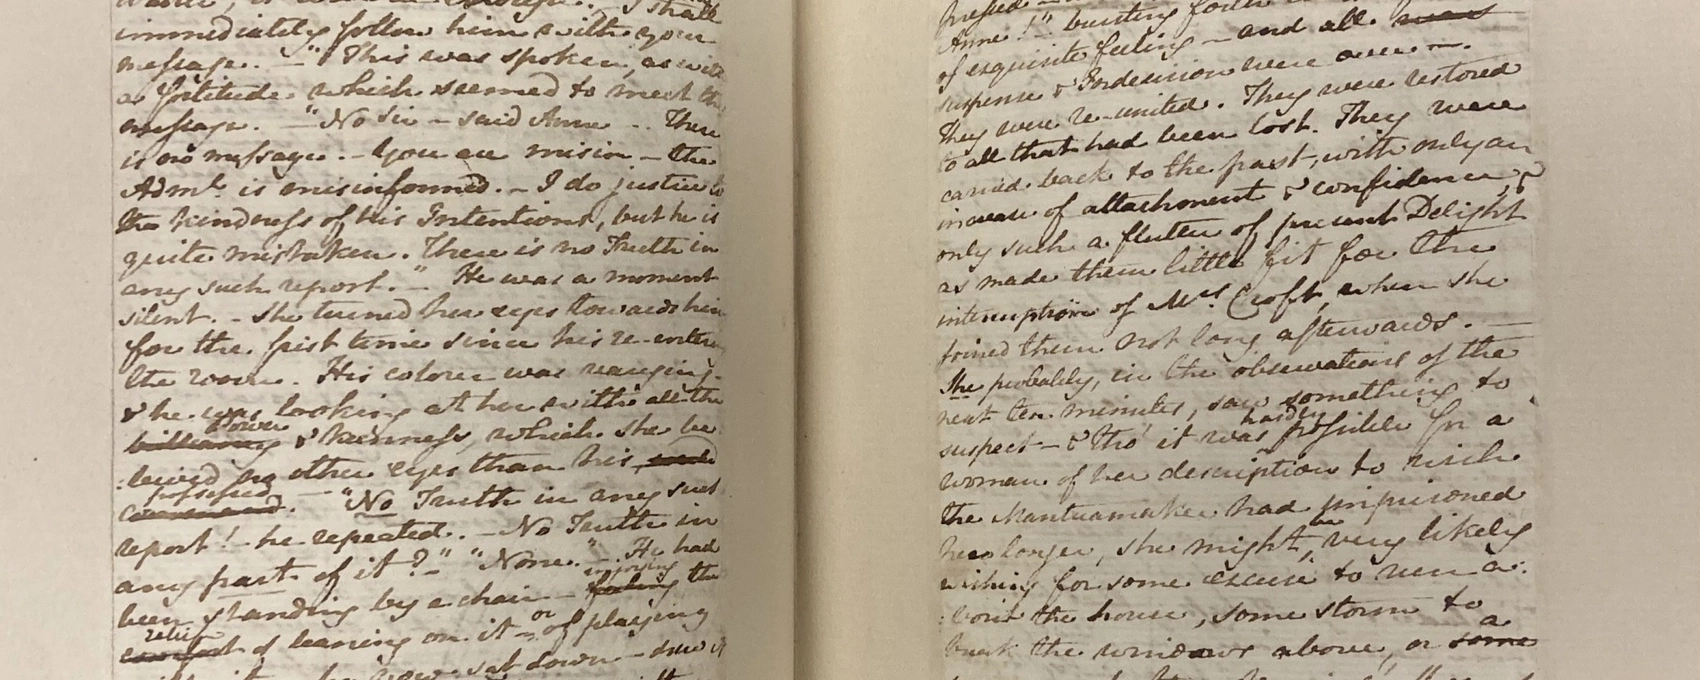 immediately follow him with your
message. —" This was spoken, as with
a fortitude which seemed to meet the
message. — "No Sir — said Anne —. There
is no message. — You are misin — the
Adml. is misinformed. — I do justice to
the kindness of his Intentions, but he is
quite mistaken. There is no Truth in
any such report." — He was a moment
silent. — She turned her eyes towards him
for the first time since his re-entering
the room. His colour was varying —
& he was looking at her with all the
Power
& keenness, which she be
:leived no other eyes than his,
possessed
. — "No Truth in any such
report! — he repeated. — No Truth in
any part of it?" — "None." — He had
enjoying
been standing by a chair — feeling the
relief or
comfort of leaning on it — of playing
he now sat down — drew it
pressed —
Anne!" bursting forth in
of exquisite feeling — and all
suspense & Indecision were over —.
They were re-united. They were restored
to all that had been lost. They were
carried back to the past, with only an
increase of attachment & confidence, &
only such a flutter of present Delight
as made them little fit for the
interruption of Mrs. Croft, when she
joined them not long afterwards. —
She probably, in the observations of the
next ten minutes, saw something to
hardly
suspect — & tho' it was possible for a
woman of her description to wish
the Mantuamaker had imprisoned
be
her longer, she might very likely
wishing for some excuse to run a:
:bout the house, some storm to
a
break the windows above, or some